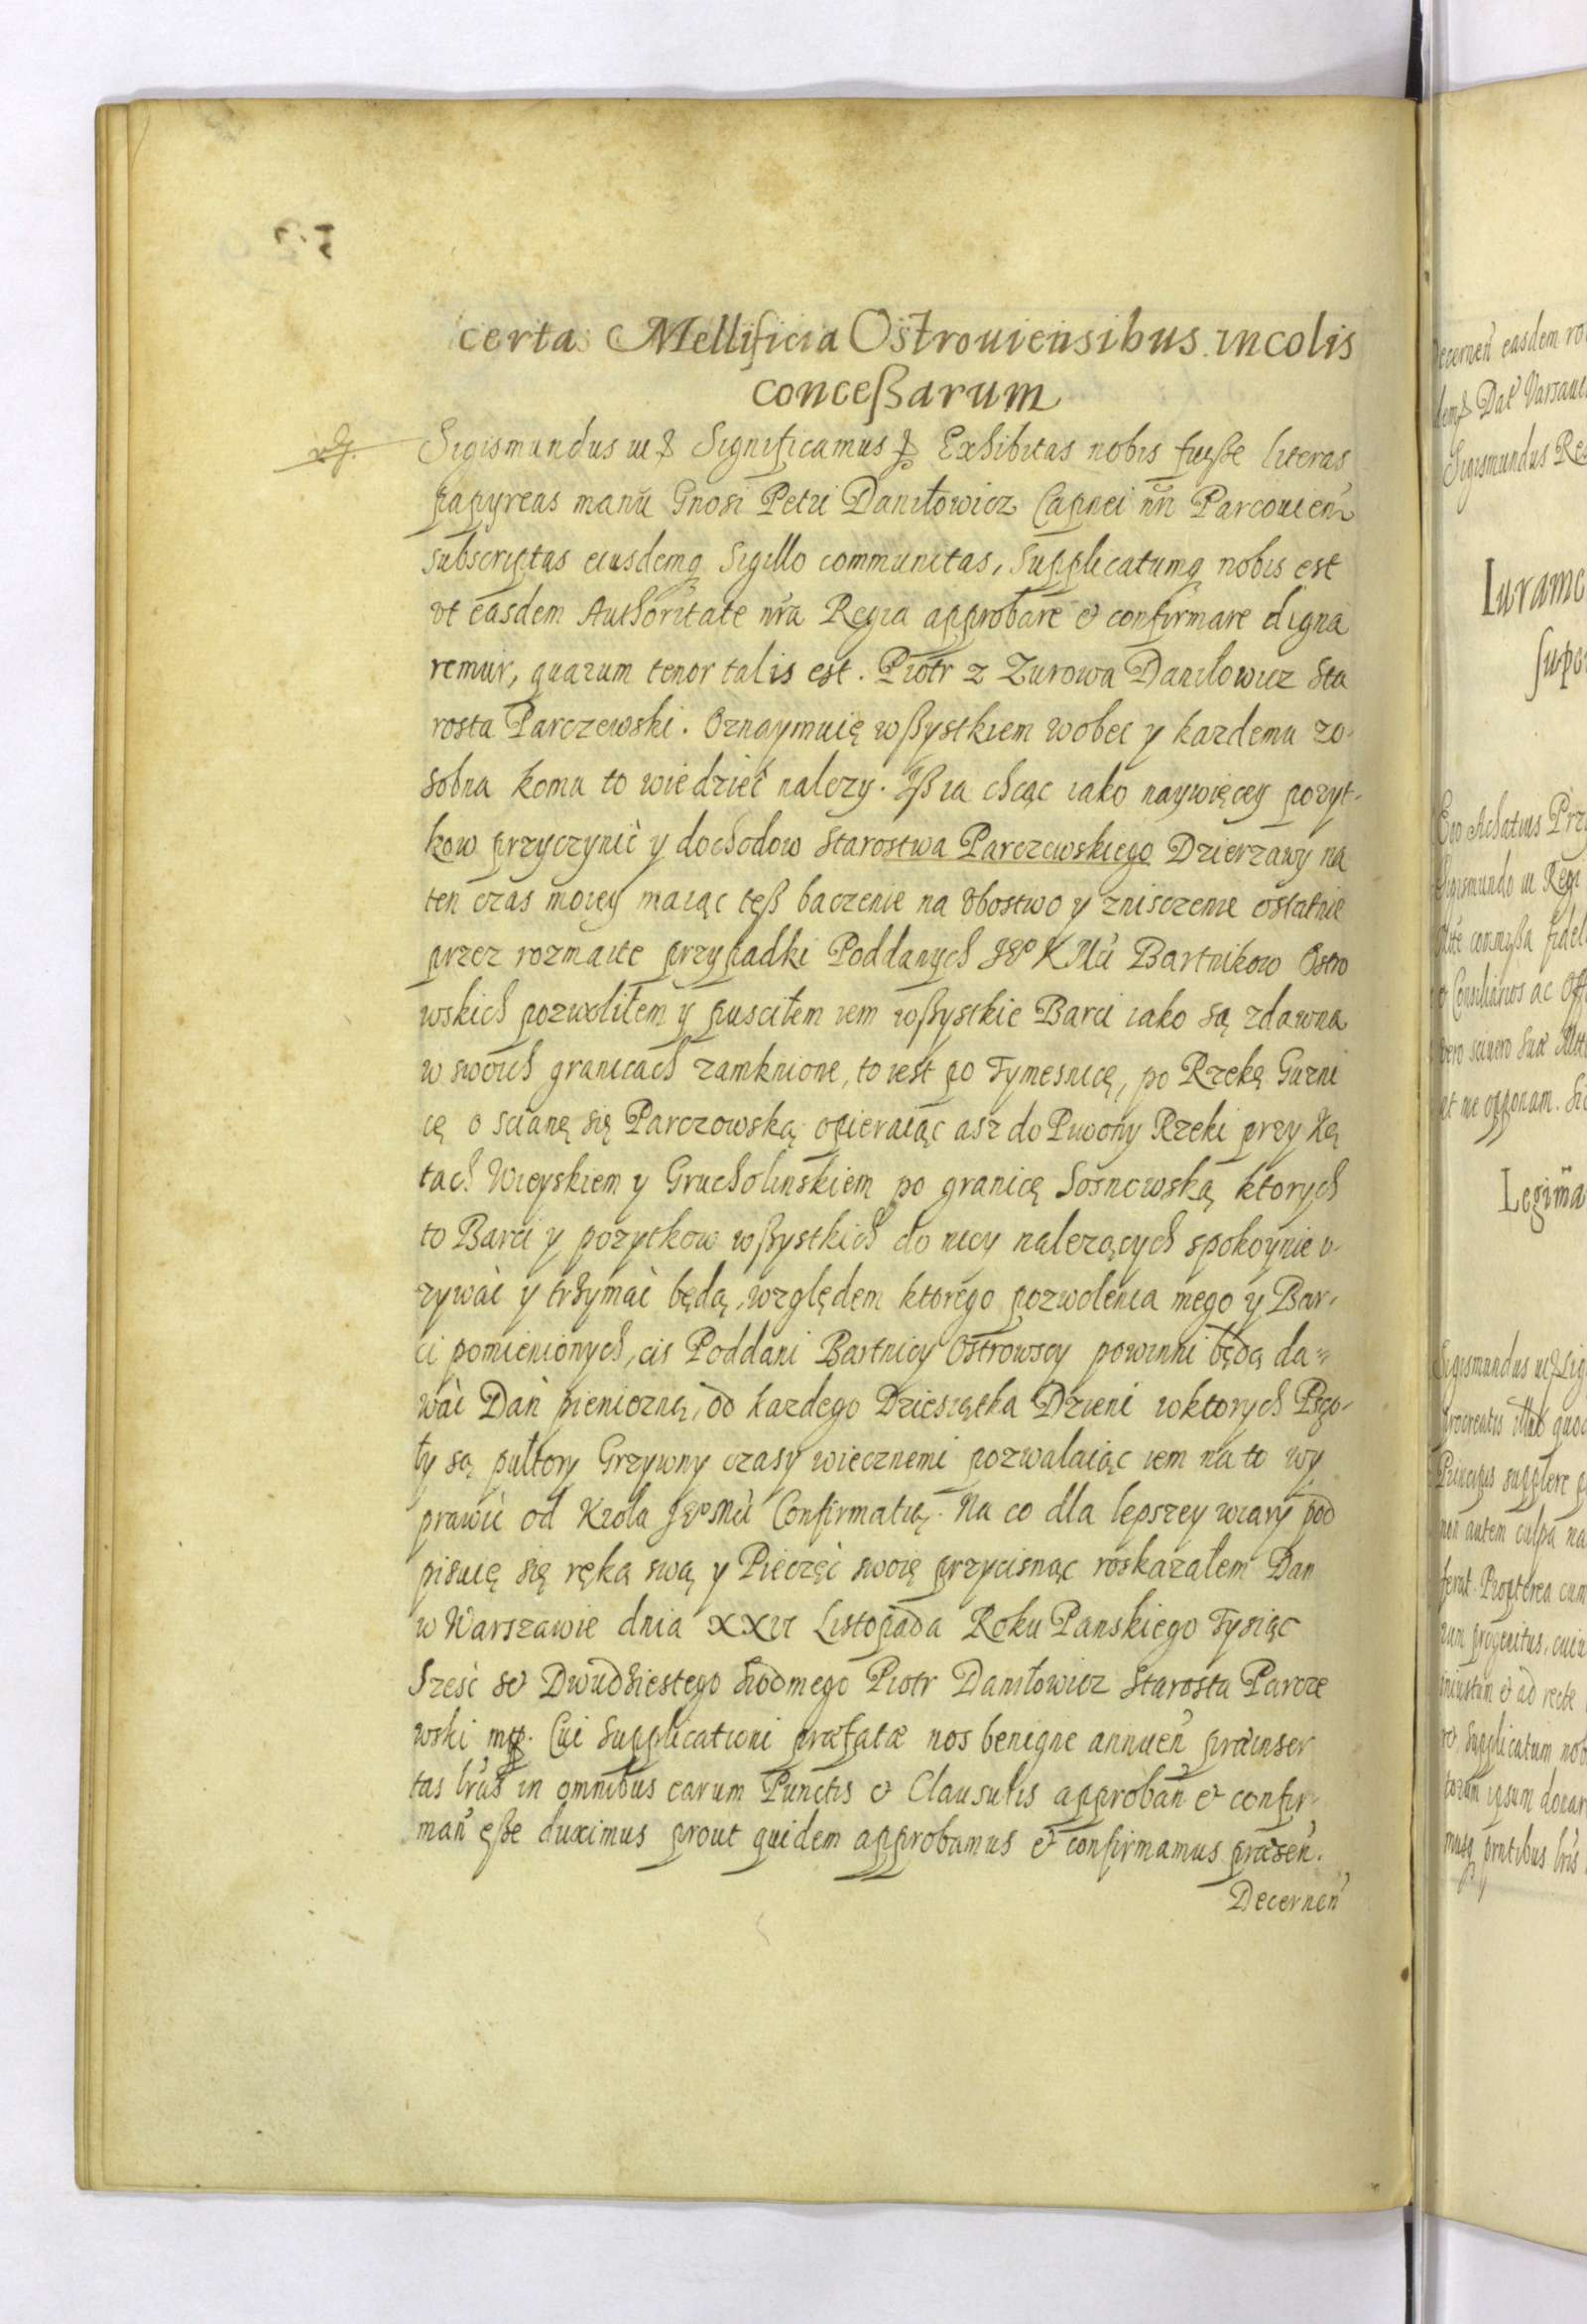 certa Mellificia Ostrouiensibus incolis
conceßarum
Sigismundus III Significamus Exhibitas nobis fuiße literas
papyreas manũ Gnosi Petri Daniłowicz Capnei nri Parcouien
subscriptas eiusdemq Sigillo communitas, Supplicatumq nobis est
vt easdem Authoritate nra Regia approbare et confirmare digna
remur, quarum tenor talis est. Piotr z Zurowa Daniłowicz Sta
rosta Parczewski. Oznaymuię wßystkiem wobec y kazdemu zo-
sobna komu to wiedzieć nalezy. Iß ia chcąc iako naywięcey pozyt-
kow przyczynić y dochodow Starostwa Parczewskiego Dzierzawy na
ten czas moiey maiąc teß baczenie na vbostwo y zniszczenie ostatnie
przez rozmaite przypadki Poddanych Je° K Mći Bartnikow Ostro
wskich pozwoliłem y pusciłem iem wßystkie Barci iako są zdawna
w swoich granicach zamknione, to iest po Tymesnicę, po Rzekę Gurni
cę o scianę się Parczowską opieraiąc asz do Piwony Rzeki przy Ką
tach Wieyskiem y Grucholinskiem po granicę Sosnowską ktorych
to Barci y pozytkow wßystkich do niey nalezących spokoynie v-
zywać y trzymać będą, względem ktorego pozwolenia mego y Bar-
ci pomienionych, cis Poddani Bartnicy Ostrowscy powinni będą da-
wać Dań pieniezną, od kazdego Dziesiątka Drzeni wktorych Psczo-
ły są pułtory Grzywny czasy wiecznemi pozwalaiąc iem na to wy
prawić od Krola Je°Mći Confirmatię. Na co dla lepszey wiary pod
pisuię się ręką swą y Pieczęć swoię przycisnąc roskazałem Dan
w Warszawie dnia XXVI Listopada Roku Panskiego Tysiąc
Szesć set Dwudziestego Siodmego Piotr Daniłowicz Starosta Parcze
wski mp. Cui Supplicationi præfatæ nos benigne annuen præinser
tas lras in omnibus earum Punctis et Clausulis approban et confir-
man eße duximus prout quidem approbamus et confirmamus præsen.
Decernen